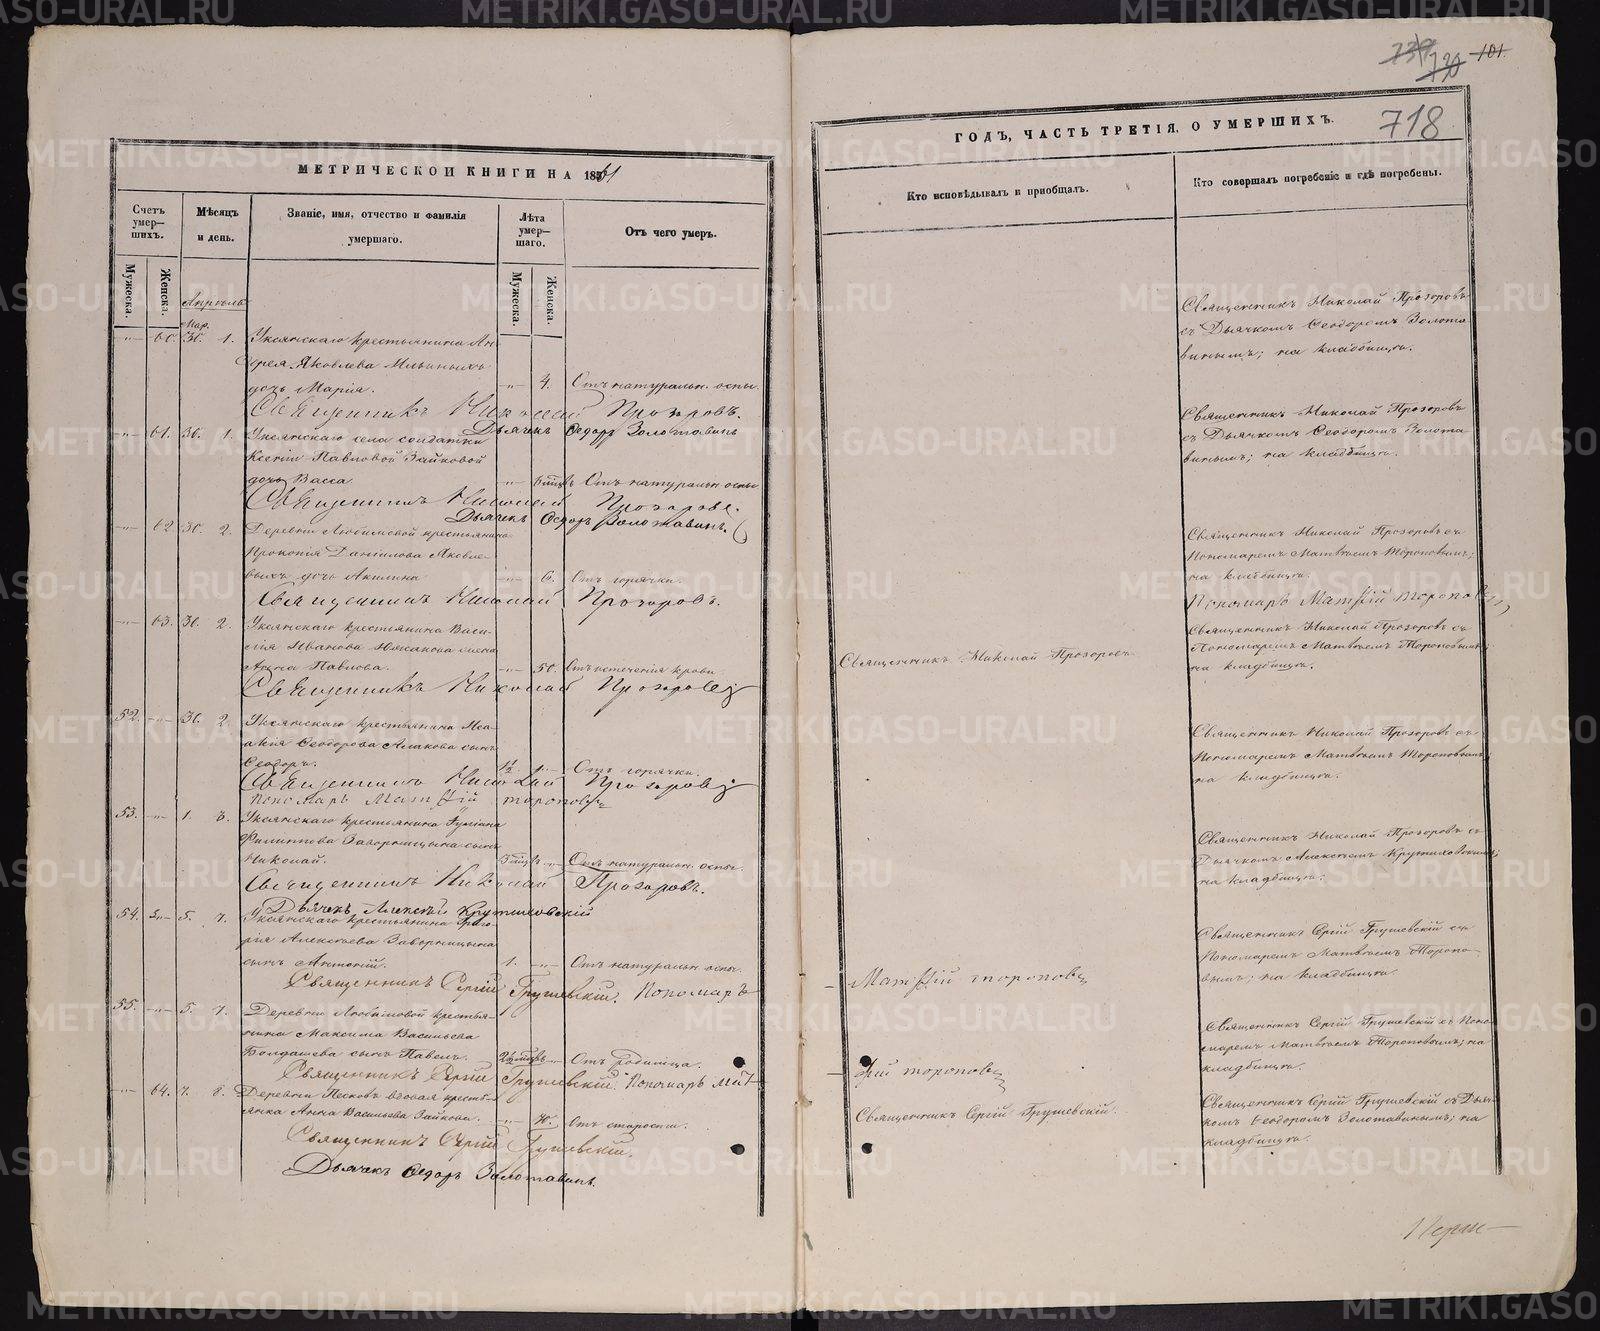 739 730 101.
718
МЕТРИЧЕСКОЙ КНИГИ НА 1861
Счетъ умер—шихъ.
Мѣсяцъ и день.
Званіе, имя, отчество и фамилія умершаго.
Лѣта умер—шаго.
Отъ чего умеръ.
Мужеска.
Женска.
Мужеска.
Женска.
Апрѣль
Мар.
60. 30. 1. Уксянскаго крестьянина Ан-
дрея Яковлева Ильиныхъ
дочь Марія. 4. Отъ натуральн. оспы.
Священникъ Николай Прозоровъ.
Дьячекъ Ѳедоръ Золотавинъ
61. 30. 1. Уксянскаго села солдатки
Ксеніи Павловой Зайковой
дочь Васса. 6 мцъ Отъ натуральн оспы
Священникъ Николай Прозоровъ.
Дьячекъ Ѳедоръ Золотавинъ.
62 30. 2. Деревни Любимовой крестьянина
Прокопія Даніилова Яковле-
выхъ дочь Акилина 6. Отъ горячки.
Священникъ Николай Прозоровъ.
63. 30. 2. Уксянскаго крестьянина Васи-
лія Иванова жена
Анна Павлова. 50. Отъ истеченія крови
Священникъ Николай Прозоровъ
52. 30. 2. Уксянскаго крестьянина Иса-
акія Ѳеодорова сынъ
Ѳеодоръ. 1½ Отъ горячки.
Священникъ Николай Прозоровъ
Пономарь Матѳій Тороповъ
53. 1. 3. Уксянскаго крестьянина
Филиппова Заворницына сынъ
Николай. 3 мцъ Отъ натуральн. оспы.
Священникъ Николай Прозоровъ.
Дьячекъ Алексѣй Крутиховскій
54. 5. 7. Уксянскаго крестьянина Григо-
рія Алексѣева Заворницына
сынъ Антоній. 1. Отъ натуральн. оспы.
Священникъ Сергій Грушевскій. Пономарь
55. 5. 7. Деревни Любимовой крестья-
нина Максима Васильева
Болдашева сынъ Павелъ. 2½ мцъ Отъ родимца.
Священникъ Сергій Грушевскій. Пономарь Мат-
64. 7. 8. Деревни Песковъ вдовая кресть-
янка Анна Васильева Зайкова. 70. Отъ старости.
Священникъ Сергій Грушевскій.
Дьячекъ Ѳедоръ Золотавинъ.
ГОДЪ, ЧАСТЬ ТРЕТІЯ, О УМЕРШИХЪ.
Кто исповѣдывалъ и пріобщалъ.
Кто совершалъ погребеніе и гдѣ погребены.
Священникъ Николай Прозоровъ
съ Дьячкомъ Ѳеодоромъ Золота
винымъ; на кладбищѣ.
Священникъ Николай Прозоровъ
съ Дьячкомъ Ѳеодоромъ Золота
винымъ; на кладбищѣ.
Священникъ Николай Прозоровъ съ
Пономаремъ Матвѣемъ Тороповымъ;
на кладбищѣ.
Пономарь Матѳій Тороповъ
Священникъ Николай Прозоровъ
Священникъ Николай Прозоровъ съ
Пономаремъ Матвѣемъ Тороповымъ;
на кладбищѣ.
Священникъ Николай Прозоровъ съ
Пономаремъ Матвѣемъ Тороповымъ;
на кладбищѣ.
Священникъ Николай Прозоровъ съ
Дьячкомъ Алексѣемъ Крутиховскимъ;
на кладбищѣ.
Священникъ Сергій Грушевскій съ
Пономаремъ Матвѣемъ Торопо-
вымъ; на кладбищѣ.
Матѳій Тороповъ
Священникъ Сергій Грушевскій съ Поно-
маремъ Матвѣемъ Тороповымъ; на
кладбищѣ.
ѳій Тороповъ
Священникъ Сергій Грушевскій.
Священникъ Сергій Грушевскій съ Дьяч-
комъ Ѳеодоромъ Золотавинымъ; на
кладбищѣ.
METRIKI.GASO-URAL.RU